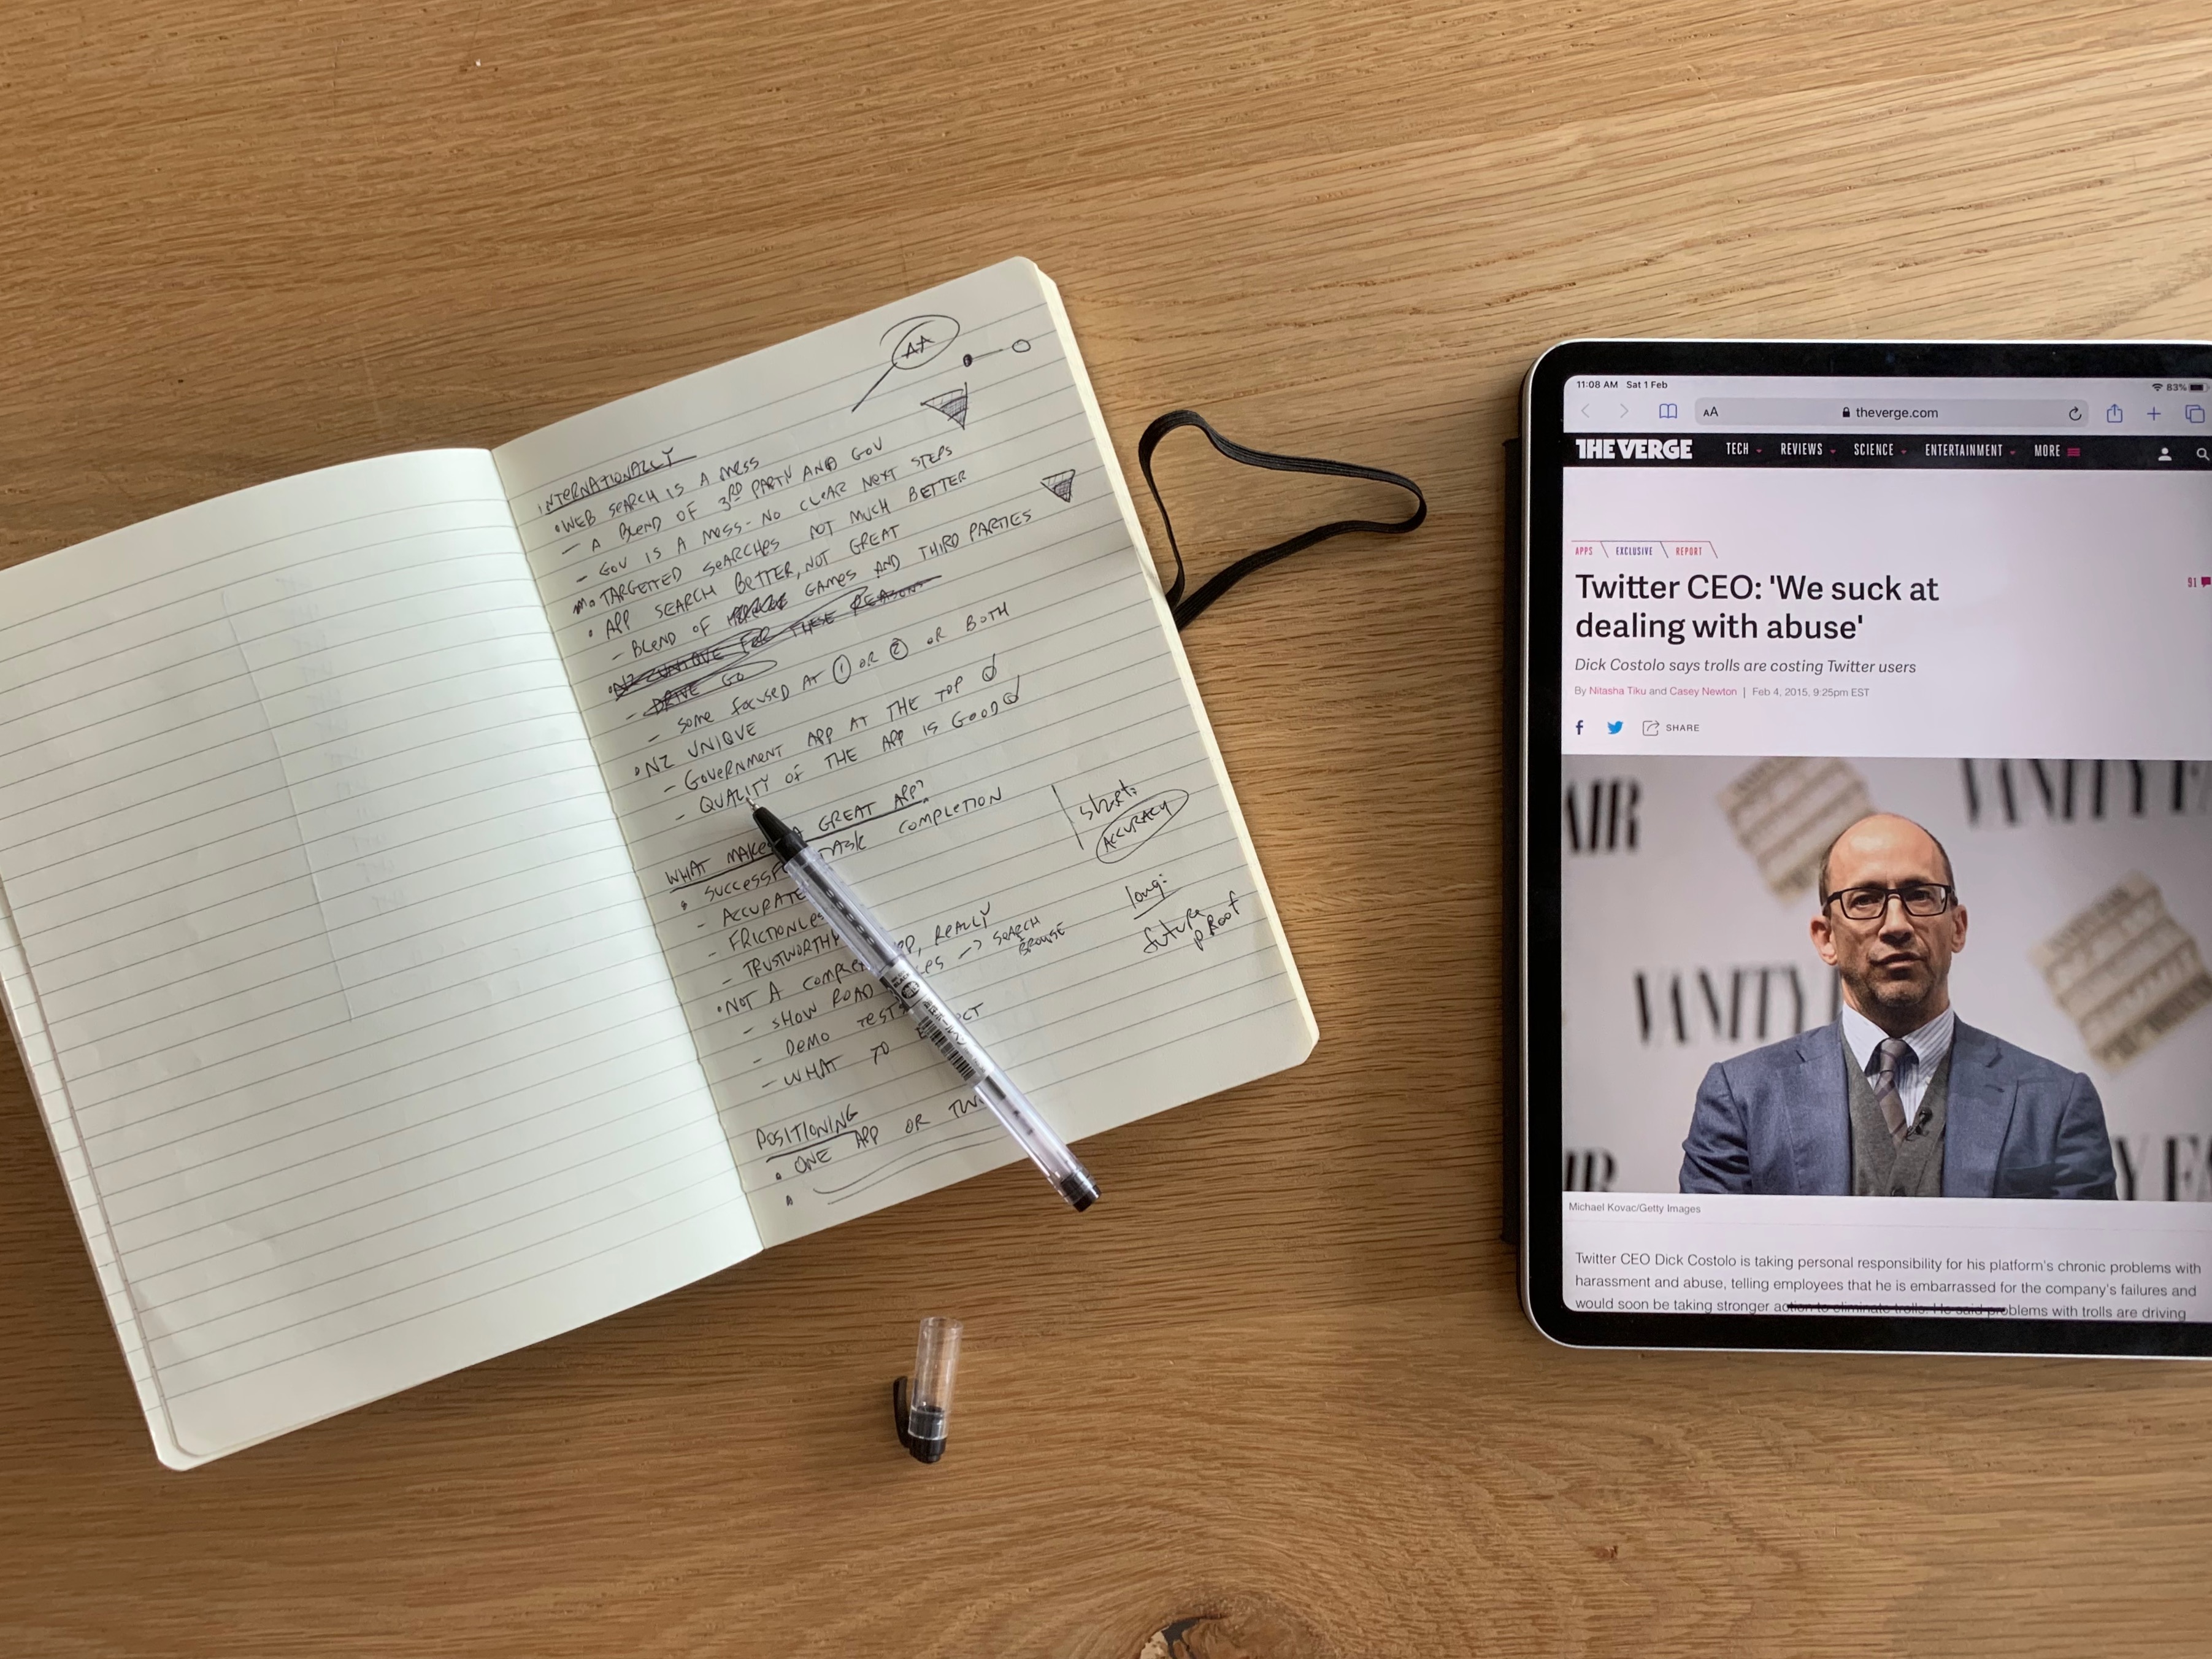 A+
INTERNATIONALLY
• WEB SEARCH IS A MESS
- A BLEND OF 3RD PARTY AND GOV
- GOV IS A MESS - NO CLEAR NEXT STEPS
• TARGETTED SEARCHES NOT MUCH BETTER
• APP SEARCH BETTER, NOT GREAT
- BLEND OF GAMES AND THIRD PARTIES
• NZ UNIQUE FOR THESE REASONS
- DRIVE GO
- SOME FOCUSED AT ① OR ② OR BOTH
• NZ UNIQUE
- GOVERNMENT APP AT THE TOP
- QUALITY OF THE APP IS GOOD
WHAT MAKES A GREAT APP?
• SUCCESSF TASK COMPLETION
- ACCURATE
- FRICTIONLES
- TRUSTWORTHY
• NOT A APP, REALLY
- SHOW ROAD → SEARCH
BROWSE
- DEMO TESTS
- WHAT TO
POSITIONING
• ONE APP OR TW
short:
ACCURACY
long:
future
proof
11:08 AM Sat 1 Feb
83%
AA
theverge.com
THE VERGE TECH REVIEWS SCIENCE ENTERTAINMENT MORE
APPS EXCLUSIVE REPORT
Twitter CEO: 'We suck at
dealing with abuse'
91
Dick Costolo says trolls are costing Twitter users
By Nitasha Tiku and Casey Newton | Feb 4, 2015, 9:25pm EST
f SHARE
AIR VANITY F
VANITY
IR VANITY FA
Michael Kovac/Getty Images
Twitter CEO Dick Costolo is taking personal responsibility for his platform's chronic problems with
harassment and abuse, telling employees that he is embarrassed for the company's failures and
would soon be taking stronger action to eliminate trolls. He said problems with trolls are driving